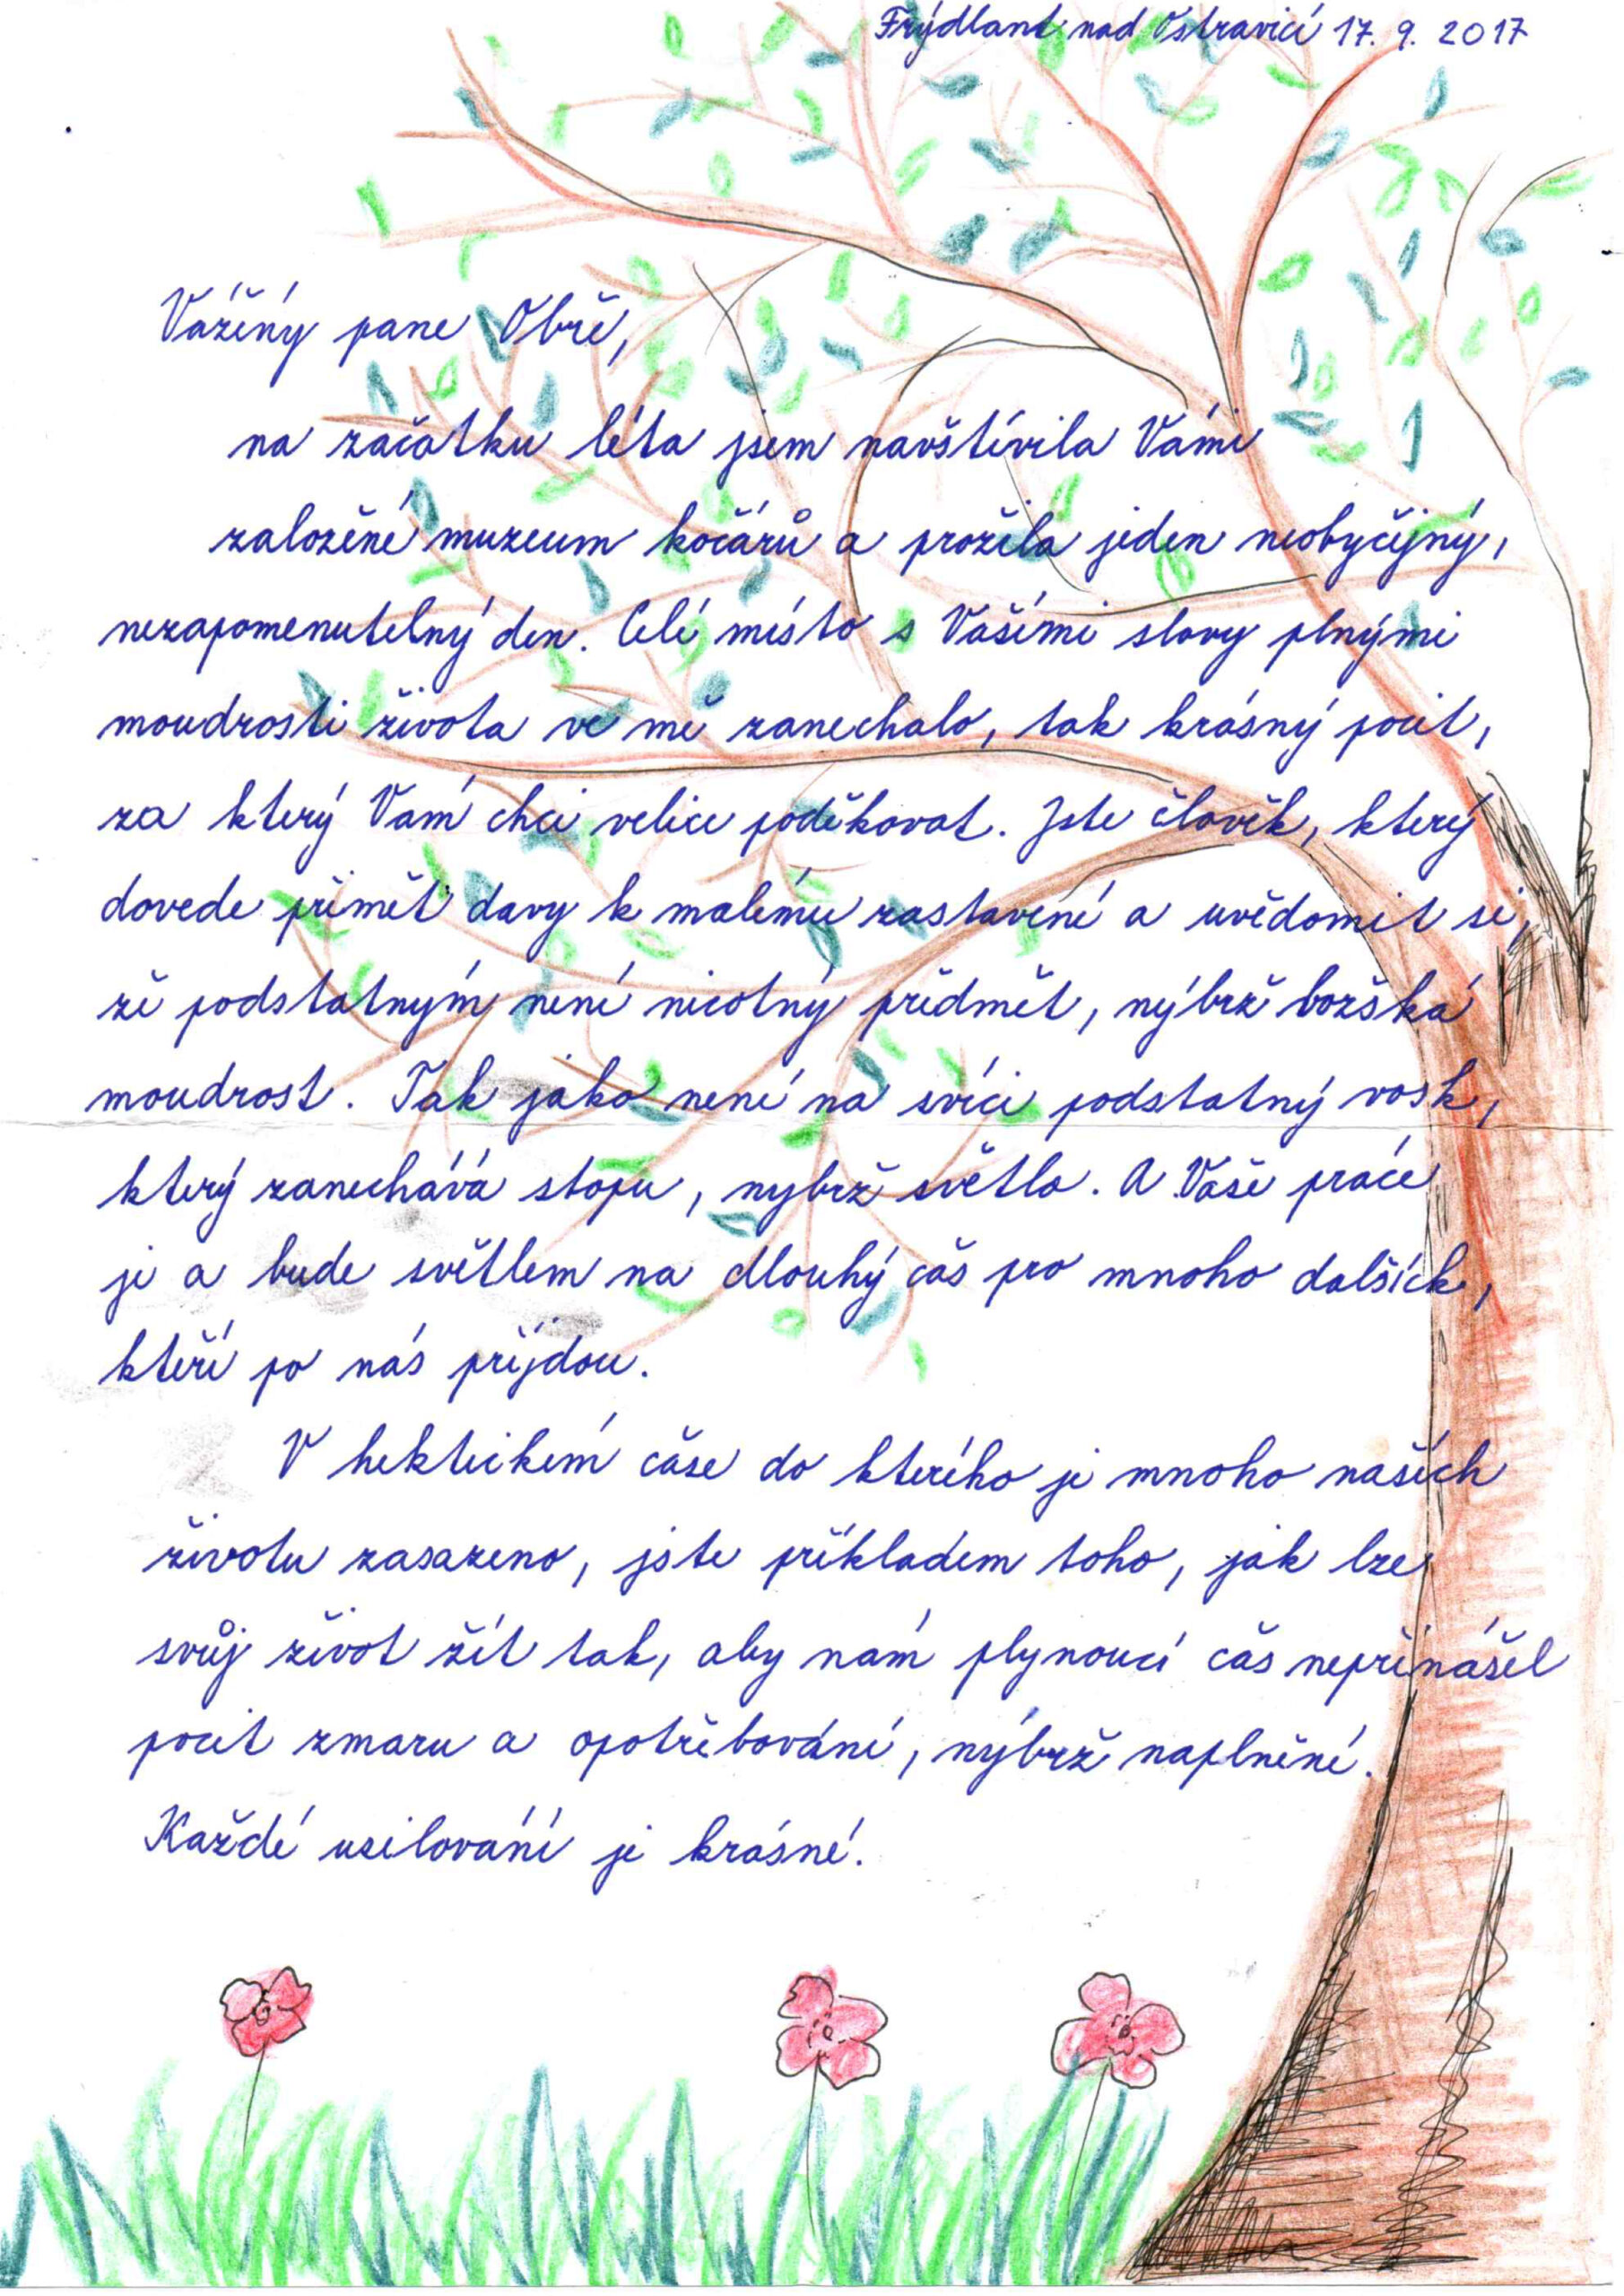 Frýdlant nad Ostravicí 17. 9. 2017
Vážený pane Obře,
na začátku léta jsem navštívila Vámi
založené muzeum kočárů a prožila jeden neobyčejný,
nezapomenutelný den. Celé místo s Vašimi slovy plnými
moudrosti života ve mě zanechalo, tak krásný pocit,
za který Vám chci velice poděkovat. Jste člověk, který
dovede přimět davy k malému zastavení a uvědomit si,
že podstatným není nicotný předmět, nýbrž božská
moudrost. Tak jako není na svíci podstatný vosk,
který zanechává stopu, nýbrž světlo. A Vaše práce
je a bude světlem na dlouhý čas pro mnoho dalších,
kteří po nás přijdou.
V hektickém čase do kterého je mnoho našich
životu zasazeno, jste příkladem toho, jak lze
svůj život žít tak, aby nám plynoucí čas nepřinášel
pocit zmaru a opotřebování, nýbrž naplnění.
Každé usilování je krásné.